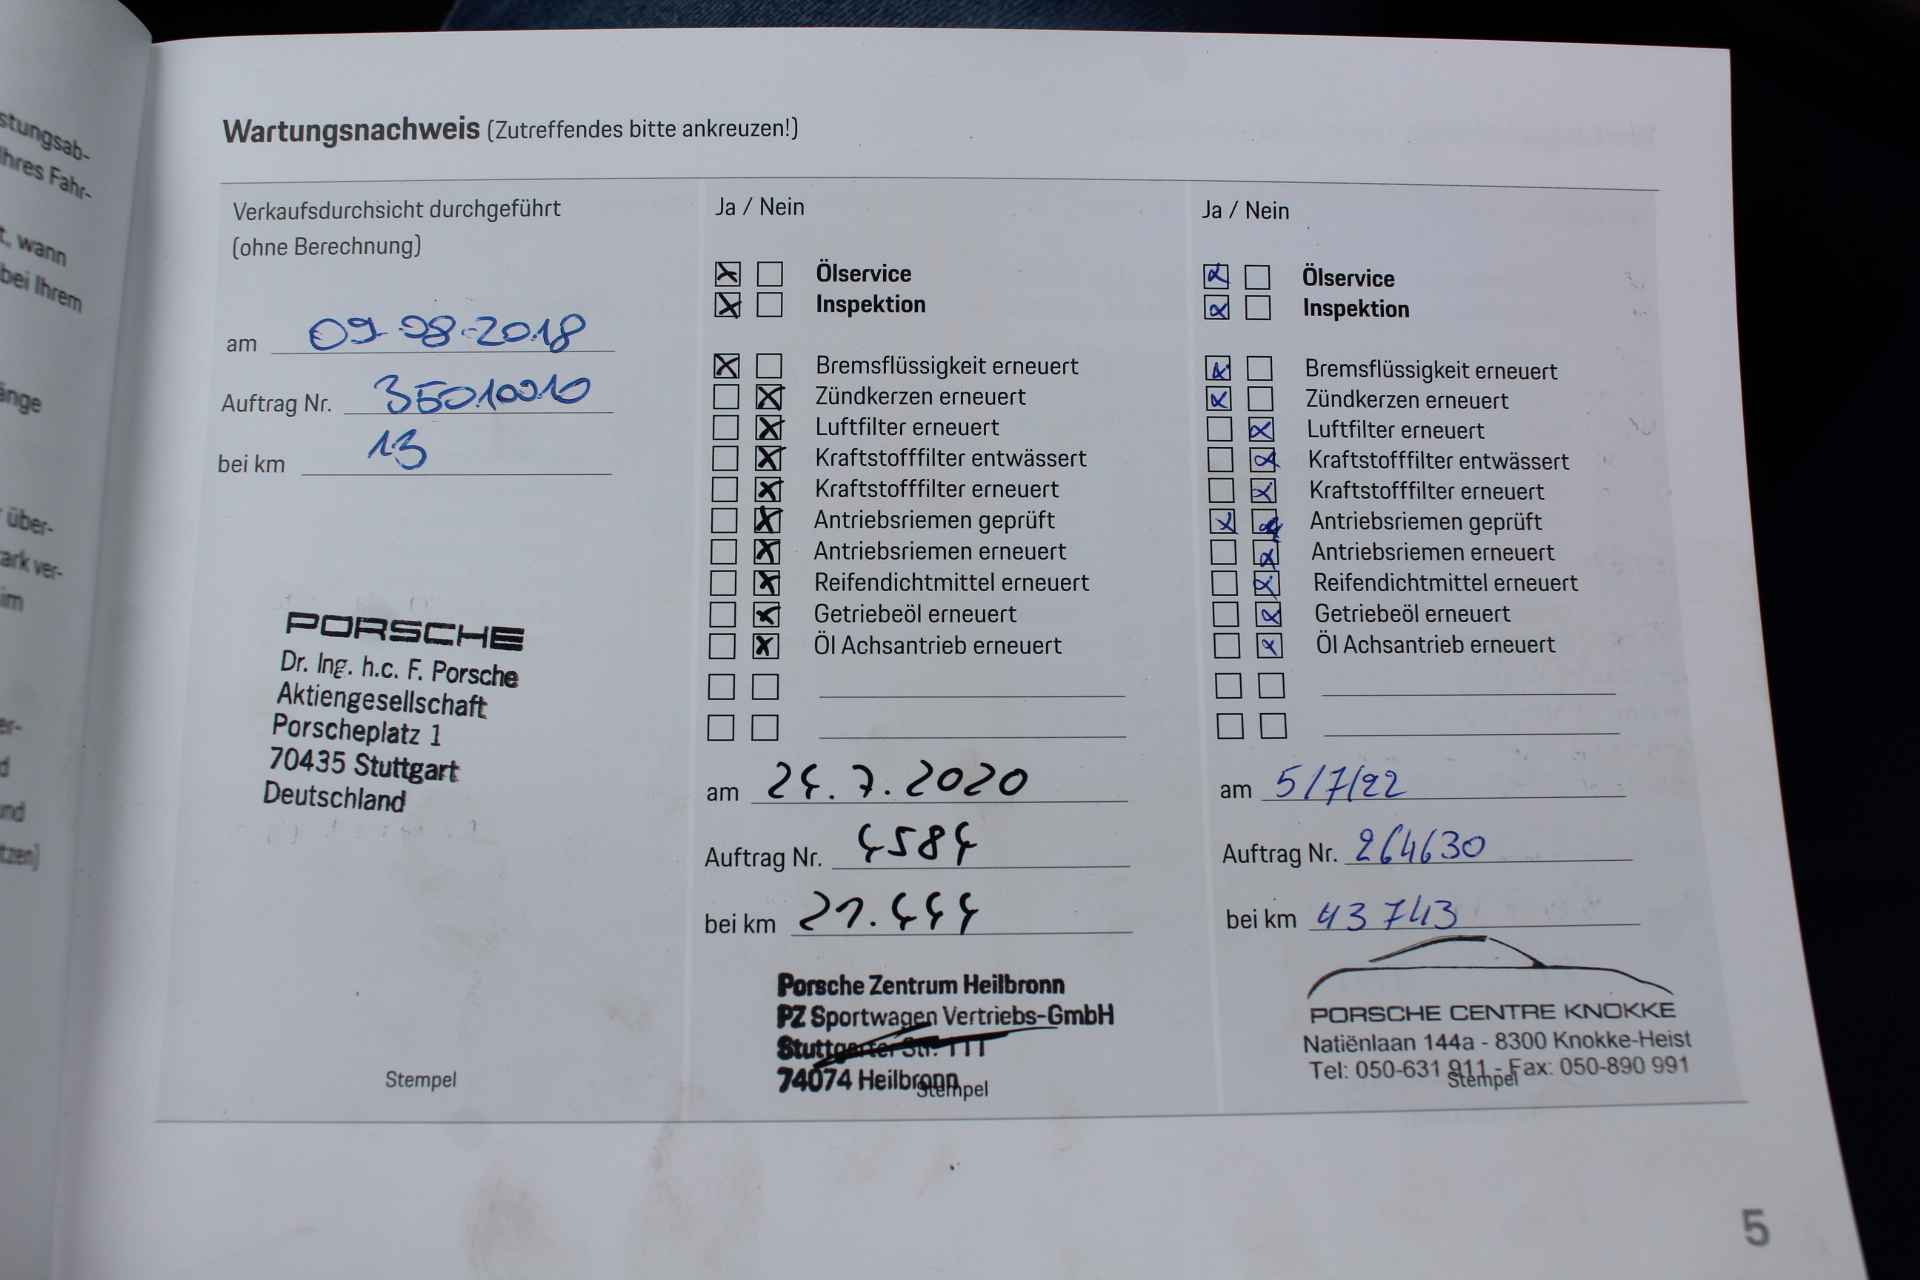 stungsab-
Ihres Fahr-
t, wann
bei Ihrem
änge
über-
ark ver-
im
er-
d
und
tzen)
Wartungsnachweis (Zutreffendes bitte ankreuzen!)
Verkaufsdurchsicht durchgeführt
(ohne Berechnung)
am 09-08-2018
Auftrag Nr. 35010010
bei km 13
PORSCHE
Dr. Ing. h.c. F. Porsche
Aktiengesellschaft
Porscheplatz 1
70435 Stuttgart
Deutschland
Stempel
Ja / Nein
Ölservice
Inspektion
Bremsflüssigkeit erneuert
Zündkerzen erneuert
Luftfilter erneuert
Kraftstofffilter entwässert
Kraftstofffilter erneuert
Antriebsriemen geprüft
Antriebsriemen erneuert
Reifendichtmittel erneuert
Getriebeöl erneuert
Öl Achsantrieb erneuert
am 24.7.2020
Auftrag Nr. 4584
bei km 21.444
Porsche Zentrum Heilbronn
PZ Sportwagen Vertriebs-GmbH
Stuttgarter Str. 111
74074 Heilbronn
Stempel
Ja / Nein
Ölservice
Inspektion
Bremsflüssigkeit erneuert
Zündkerzen erneuert
Luftfilter erneuert
Kraftstofffilter entwässert
Kraftstofffilter erneuert
Antriebsriemen geprüft
Antriebsriemen erneuert
Reifendichtmittel erneuert
Getriebeöl erneuert
Öl Achsantrieb erneuert
am 5/7/22
Auftrag Nr. 264630
bei km 43743
PORSCHE CENTRE KNOKKE
Natiënlaan 144a - 8300 Knokke-Heist
Tel: 050-631 911 - Fax: 050-890 991
Stempel
5